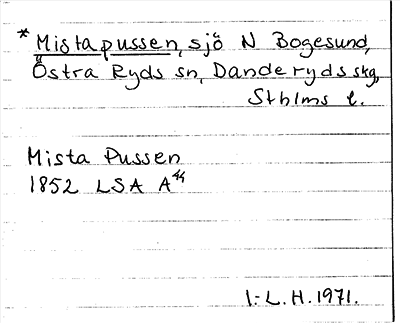 * Mistapussen, sjö N Bogesund,
Östra Ryds sn, Danderyds skg,
Sthlms l.
Mista Pussen
1852 LSA A⁴⁴
I.-L.H.1971.